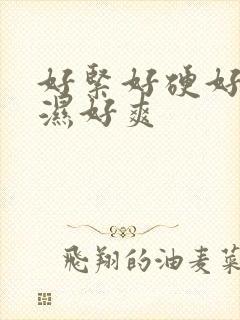 好緊好硬好
濕好爽
飛翔的油麦菜